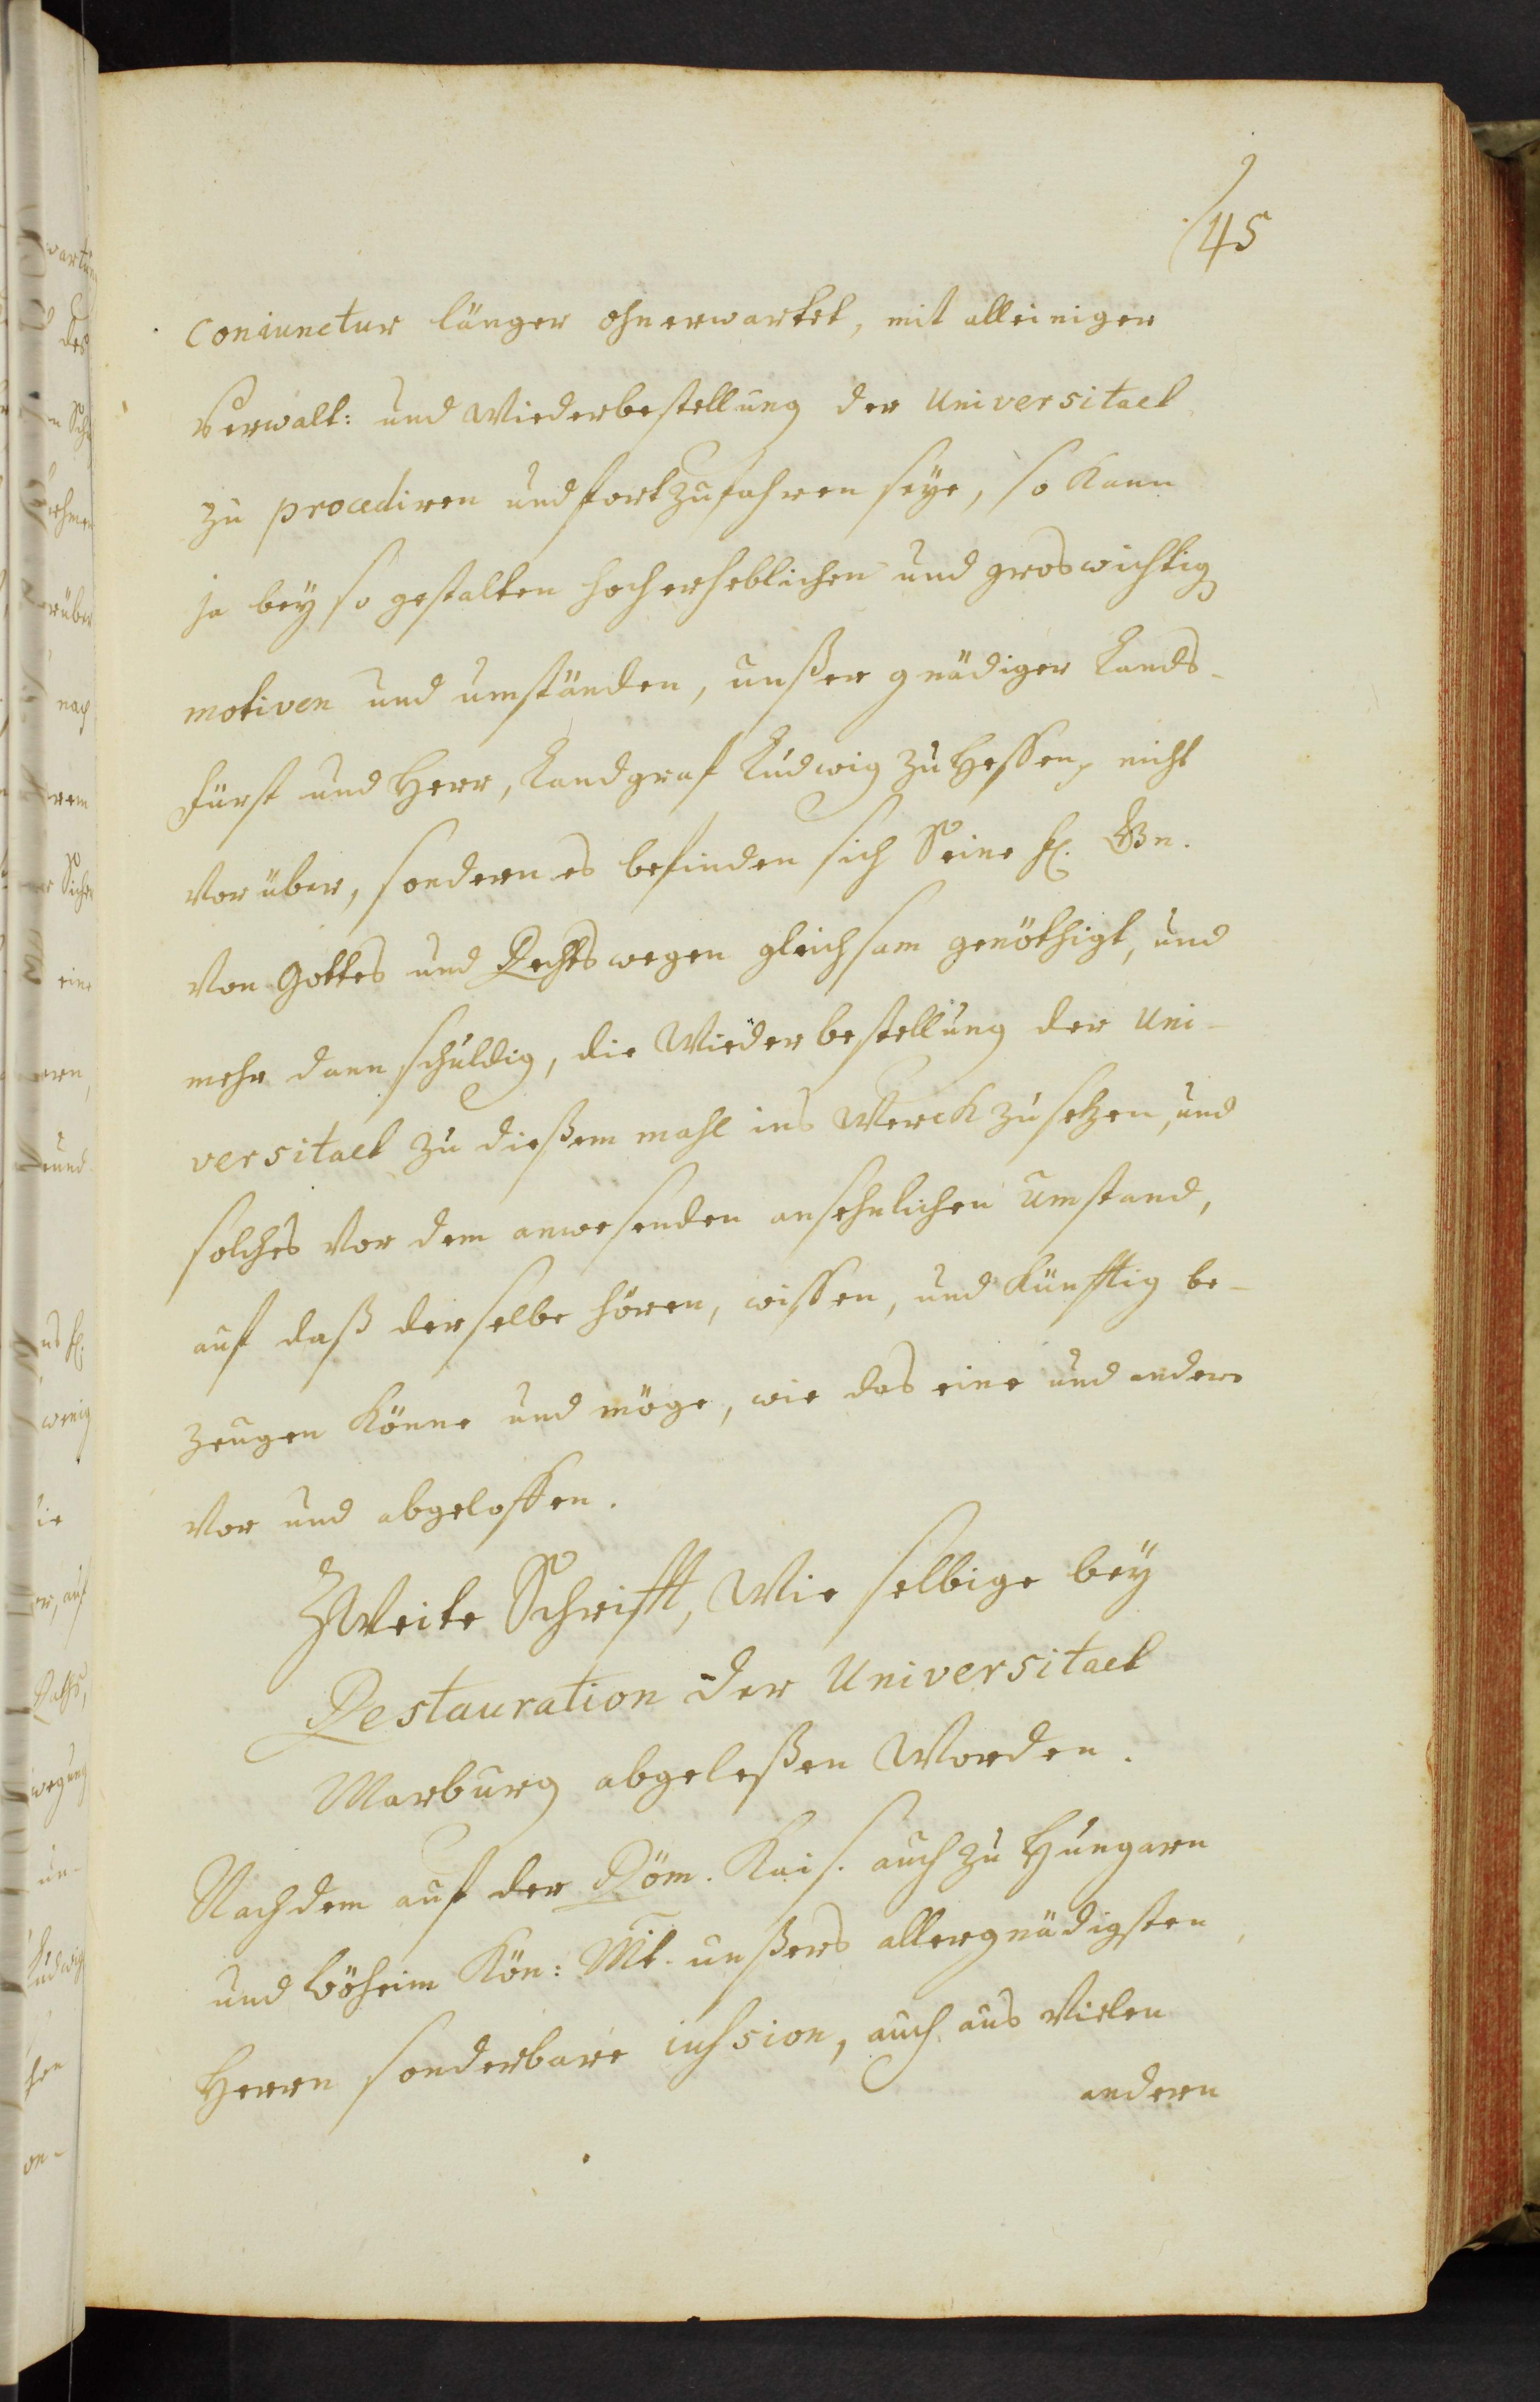 45
coniunctur länger ohnerwartet, mit alleiniger
Verwalt: und Wiederbestellung der Universitaet
zu procediren und fortzufahren seye, so kann
ja bey so gestalten hocherheblichen und groswichtig
motiven und umständen, unßer gnädiger Lands-
Fürst und Herr, Landgraf Ludwig zu Hessen, nicht
vorüber, sondern es befinden sich Seine fl. Gn.
von Gottes und Rechts wegen gleichsam genöthigt, und
mehr dann schuldig, die Wiederbestellung der Uni-
versitaet zu dießem mahl ins Werck zu setzen, und
solches vor dem anwesenden ansehnlichen Umstand,
auf daß derselbe hören, wissen, und künfftig be-
zeugen könne und möge, wie das eine und andere
vor und abgeloffen.
Zweite Schrifft, Wie selbige bey
Restauration der Universitaet
Marburg abgeleßen Worden.
Nachdem auf der Röm. Kais. auch zu Hungarn
und Böheim Kön: Mt. unßers allergnädigsten
Herrn sonderbare iussion, auch aus vielen
andern